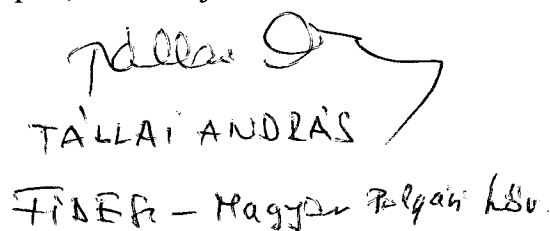 Tállai A
TÁLLAI ANDRÁS
FIDESZ – Magyar Polgári Szöv.